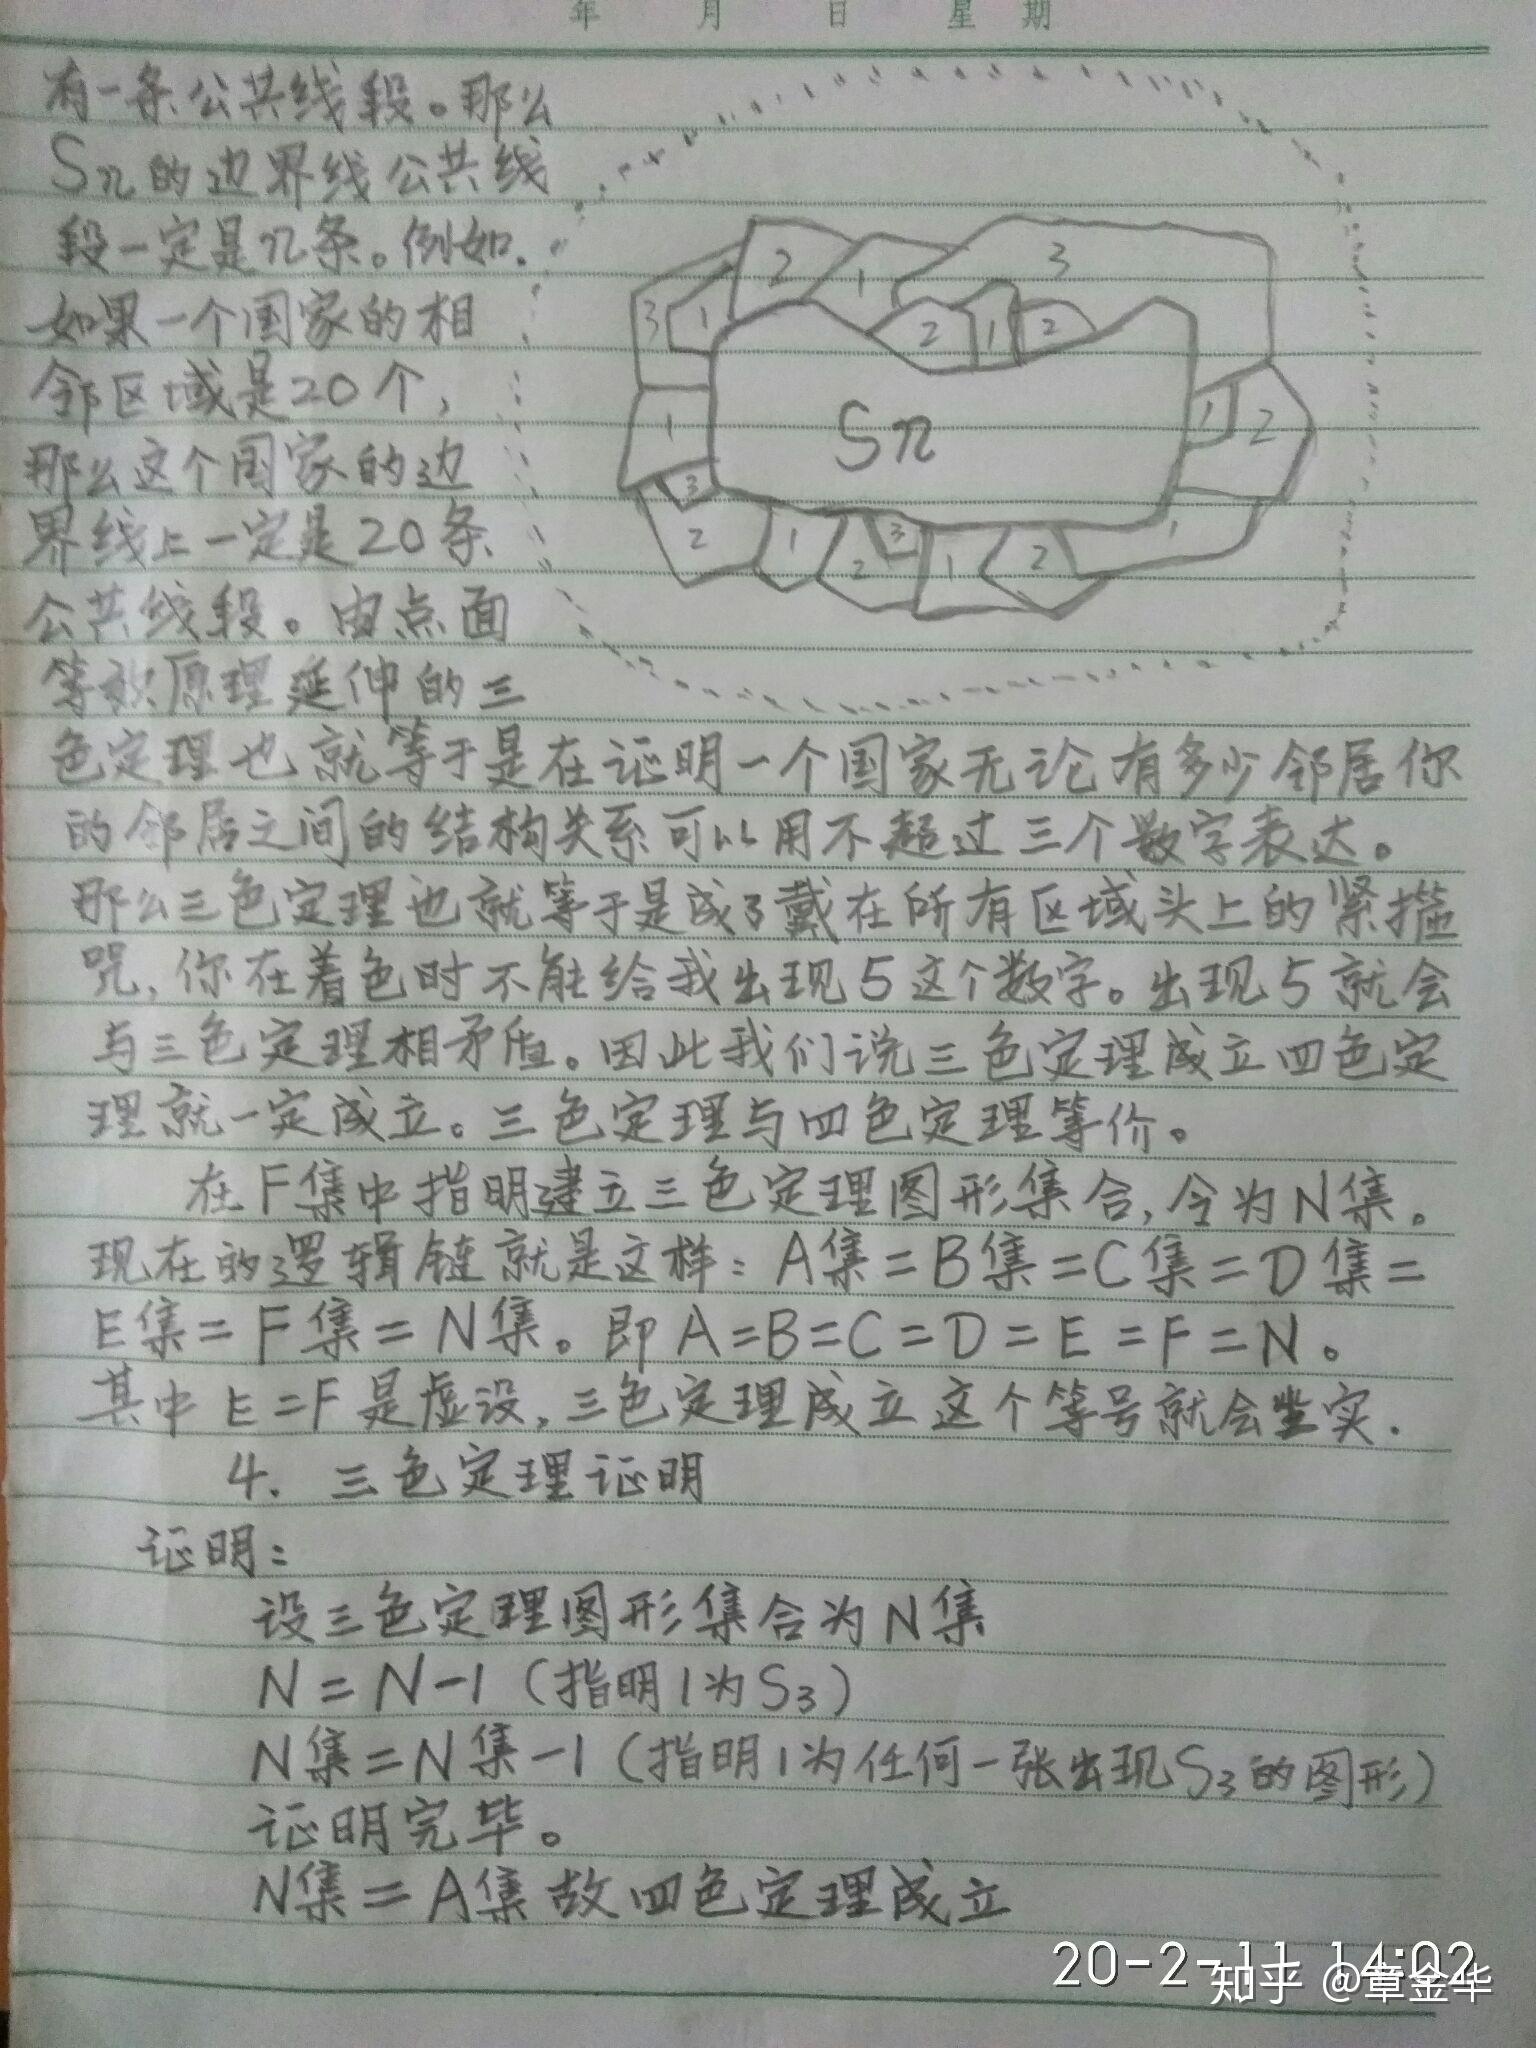 年 月 日 星 期
有一条公共线段。那么
Sn的边界线公共线
段一定是n条。例如.
如果一个国家的相
邻区域是20个，
那么这个国家的边
界线上一定是20条
公共线段。由点面
等效原理延伸的三
色定理也就等于是在证明一个国家无论有多少邻居你
的邻居之间的结构关系可以用不超过三个数字表达。
那么三色定理也就等于是成了戴在所有区域头上的紧箍
咒，你在着色时不能给我出现5这个数字。出现5就会
与三色定理相矛盾。因此我们说三色定理成立四色定
理就一定成立。三色定理与四色定理等价。
在F集中指明建立三色定理图形集合，令为N集。
现在的逻辑链就是这样：A集=B集=C集=D集=
E集=F集=N集。即A=B=C=D=E=F=N。
其中E=F是虚设，三色定理成立这个等号就会坐实.
4. 三色定理证明
证明：
设三色定理图形集合为N集
N=N-1（指明1为S3）
N集=N集-1（指明1为任何一张出现S3的图形）
证明完毕。
N集=A集故四色定理成立
3
1
2
1
3
2
1
2
1
2
1
3
2
1
2
3
1
2
1
Sn
20-2-11 14:02
知乎 @章金华